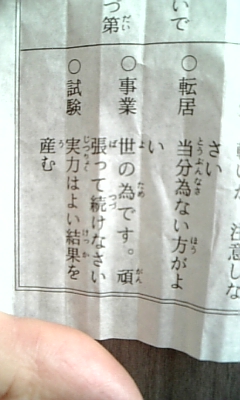 いで
づ第
注意しな
さい
○転居 当分為ない方がよ
い
○事業 世の為です。頑
張って続けなさい
○試験 実力はよい結果を
産む